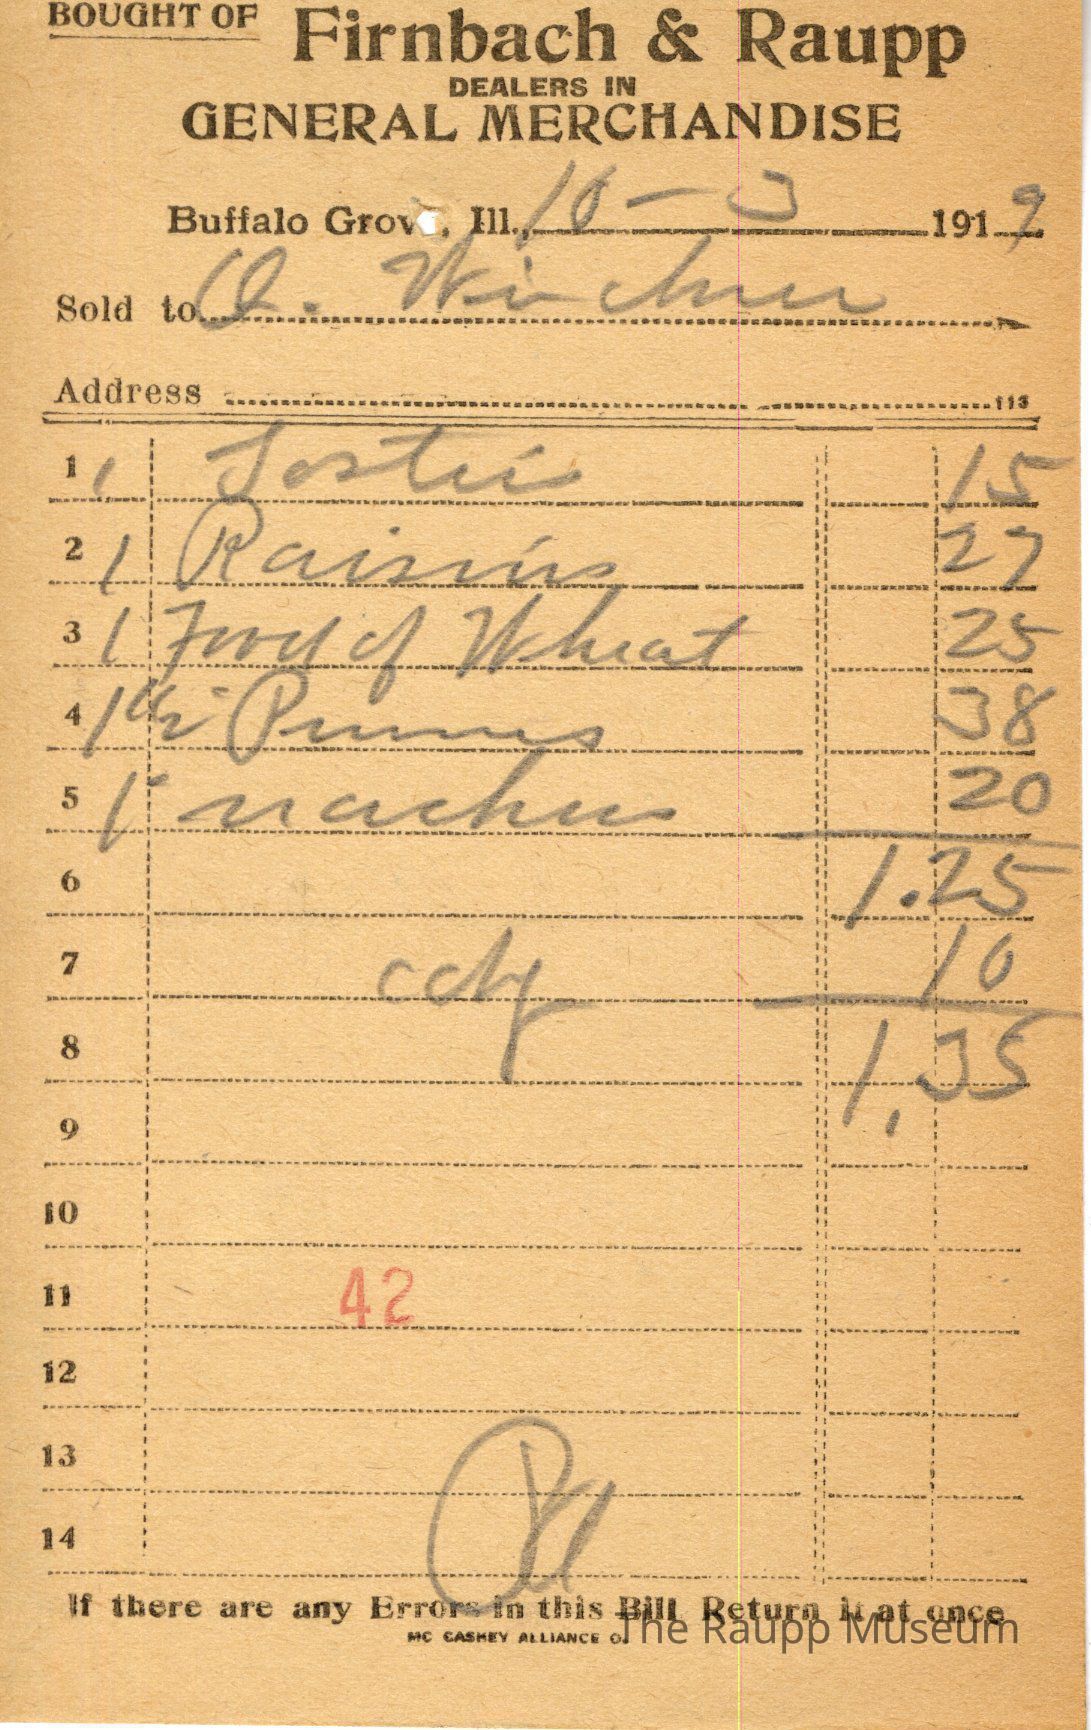 BOUGHT OF Firnbach & Raupp
DEALERS IN
GENERAL MERCHANDISE
Buffalo Grove, Ill., 10 - 3 1919
Sold to O.
Address 113
1 1 15
2 1 Raisins 27
3 1 Food of Wheat 25
4 1 Prunes 38
5 1 20
6 1.25
7 cdy 10
8 1.35
9
10
11 42
12
13
14
If there are any Errors in this Bill Return it at once
MC CASKEY ALLIANCE O.
The Raupp Museum